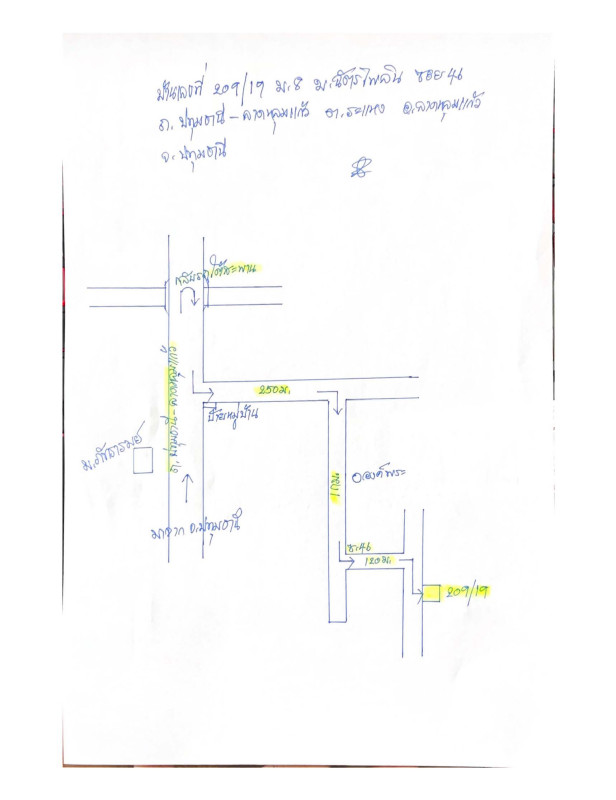 บ้านเลขที่ 209/19 ม.8 ม.ฉัตรไพลิน ซอย 46
ถ.ปทุมธานี-ลาดหลุมแก้ว ต.ระแหง อ.ลาดหลุมแก้ว
จ.ปทุมธานี
กลับรถ ใต้สะพาน
ถ.ปทุมธานี-ลาดหลุมแก้ว
250 ม.
ป้ายหมู่บ้าน
1 กม.
องค์พระ
มาจาก จ.ปทุมธานี
ซ.46
120 ม.
209/19